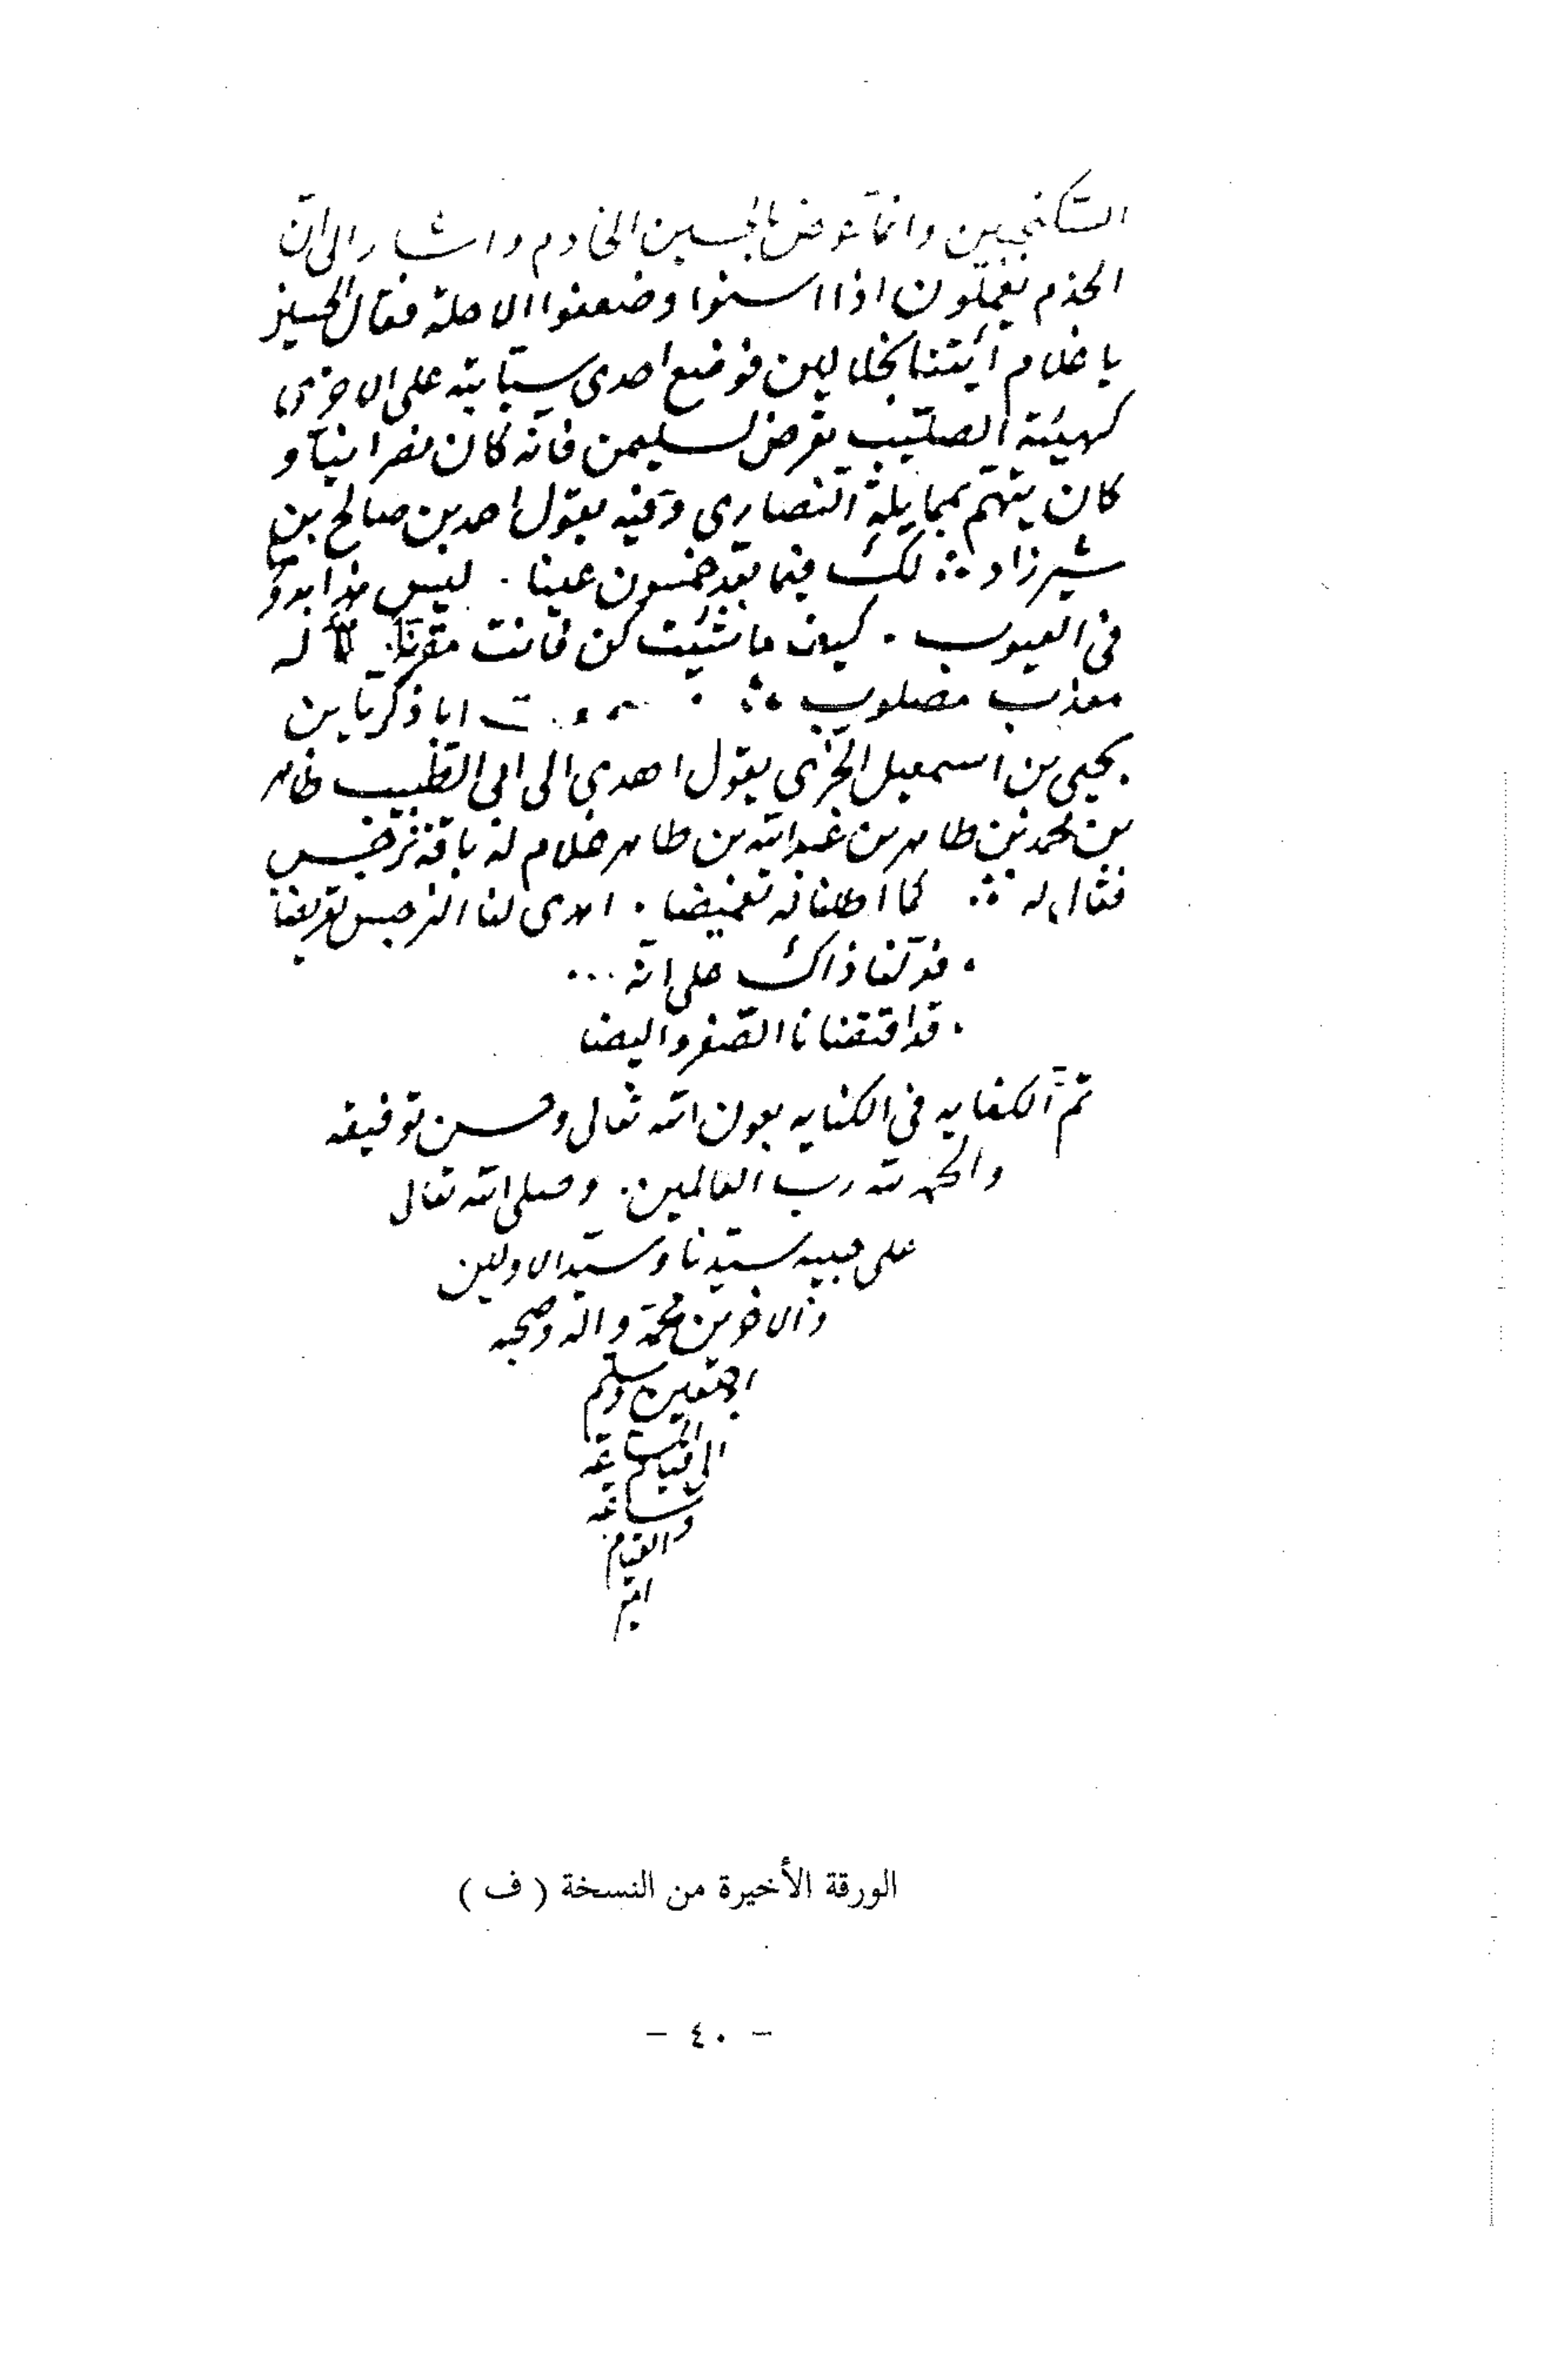 السّكنجبين وانمّا عرض بالحسين الخادم واشار الى انّ
الخدم يفعلون اذا اسنوا وضعفوا الاصلة فقال الحسين
يا غلام ائتنا بخلالين فوضع احدى سبّابتيه على الاخرى
كهيئة الصليب يعرض لسليمن فانّه كان نصرانيّا و
كان يتّهم بمايلة النصارى وفيه يقول احمد بن صالح بن
شيرزاد ∴ لك فيما يعد خمسون عيبا . ليس هذا
فى العيوب . كيف ما شئت كن فانت مقرّ لاله
معذب مصلوب ∴ . ابا ذكريا بن
يحيى بن اسمعيل يقول اهدى الى ابى الطّيب طاهر
بن محمد بن طاهر بن عبد الله بن طاهر غلام له باقة نرجس
فقال له ∴ لما اطلنا عنه تغميضا . اهدى لنا النرجس تعريضا
. فدلّنا ذاك على انّه ...
. قد اقتضانا الصّفر والبيضا
تمّ الكفايه فى الكنايه بعون الله تعالى وحسن توفيقه
والحمد لله رب العالمين . وصلى الله تعالى
على حبيبه سيّدنا وسيّد الاولين
والاخرين محمّد واله وصحبه
اجمعين وسلّم
الى قيام السّاعة
وساعة
القيام